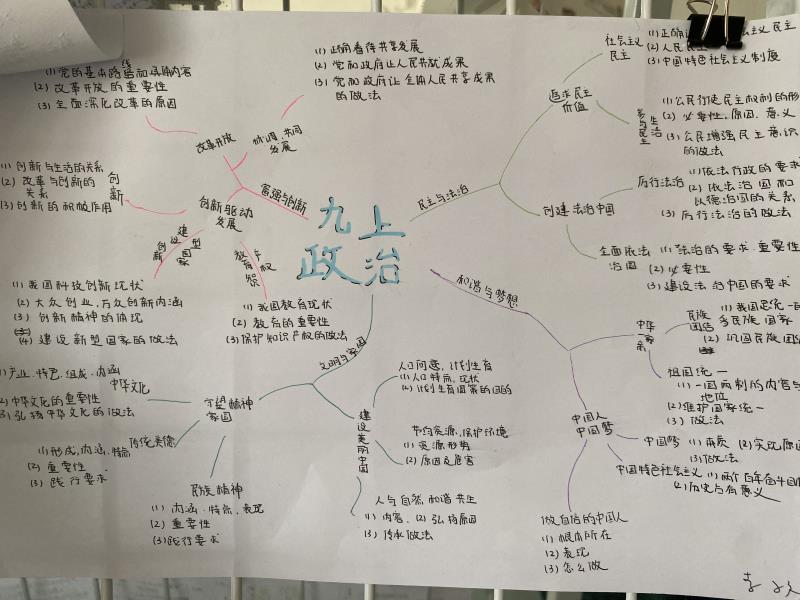 九上
政治
富强与创新
改革开放
(1) 党的基本路线和具体内容
(2) 改革开放的重要性
(3) 全面深化改革的原因
协调 共同
发展
(1) 正确看待共享发展
(2) 党和政府让人民共就成果
(3) 党和政府让全体人民共享成果
的做法
创新驱动
发展
创新
(1) 创新与生活的关系
(2) 改革与创新的
关系
(3) 创新的积极作用
建设
创新型
国家
(1) 我国科技创新现状
(2) 大众创业,万众创新内涵
(3) 创新精神的体现
(4) 建设新型国家的做法
教育
产权
(1) 我国教育现状
(2) 教育的重要性
(3) 保护知识产权的做法
民主与法治
追求民主
价值
社会主义
民主
(1) 正确
主义民主
(2) 人民民主
(3) 中国特色社会主义制度
参与民主
生活
(1) 公民行使民主权利的形
(2) 必要性,原因,意义
(3) 公民增强民主意识
的做法
创建法治中国
厉行法治
(1) 依法行政的要求
(2) 依法治国和
以德治国的关系
(3) 厉行法治的做法
全面依法
治国
(1) 法治的要求·重要性
(2) 必要性
(3) 建设法治中国的要求
文明与家园
守望精神
家园
中华文化
(1) 产业·特色·组成·内涵
(2) 中华文化的重要性
(3) 弘扬中华文化的做法
传统美德
(1) 形成,内涵,特点
(2) 重要性
(3) 践行要求
民族精神
(1) 内涵·特点·表现
(2) 重要性
(3) 践行要求
建设美丽
中国
人口问题,计划生育
(1) 人口特点,现状
(2) 计划生育国策的目的
节约资源,保护环境
(1) 资源形势
(2) 原因及危害
人与自然和谐共生
(1) 内容, (2) 弘扬原因
(3) 传承做法
和谐与梦想
中华一家亲
民族
团结
(1) 我国是统一的
多民族国家
(2) 巩固民族团
祖国统一
(1) 一国两制的内容与
地位
(2) 维护国家统一
(3) 做法
中国人
中国梦
中国梦
(1) 本质 (2) 实现原因
(3) 做法
中国特色社会主义
(1) 两个百年奋斗目
(2) 历史与有意义
做自信的中国人
(1) 根本所在
(2) 表现
(3) 怎么做